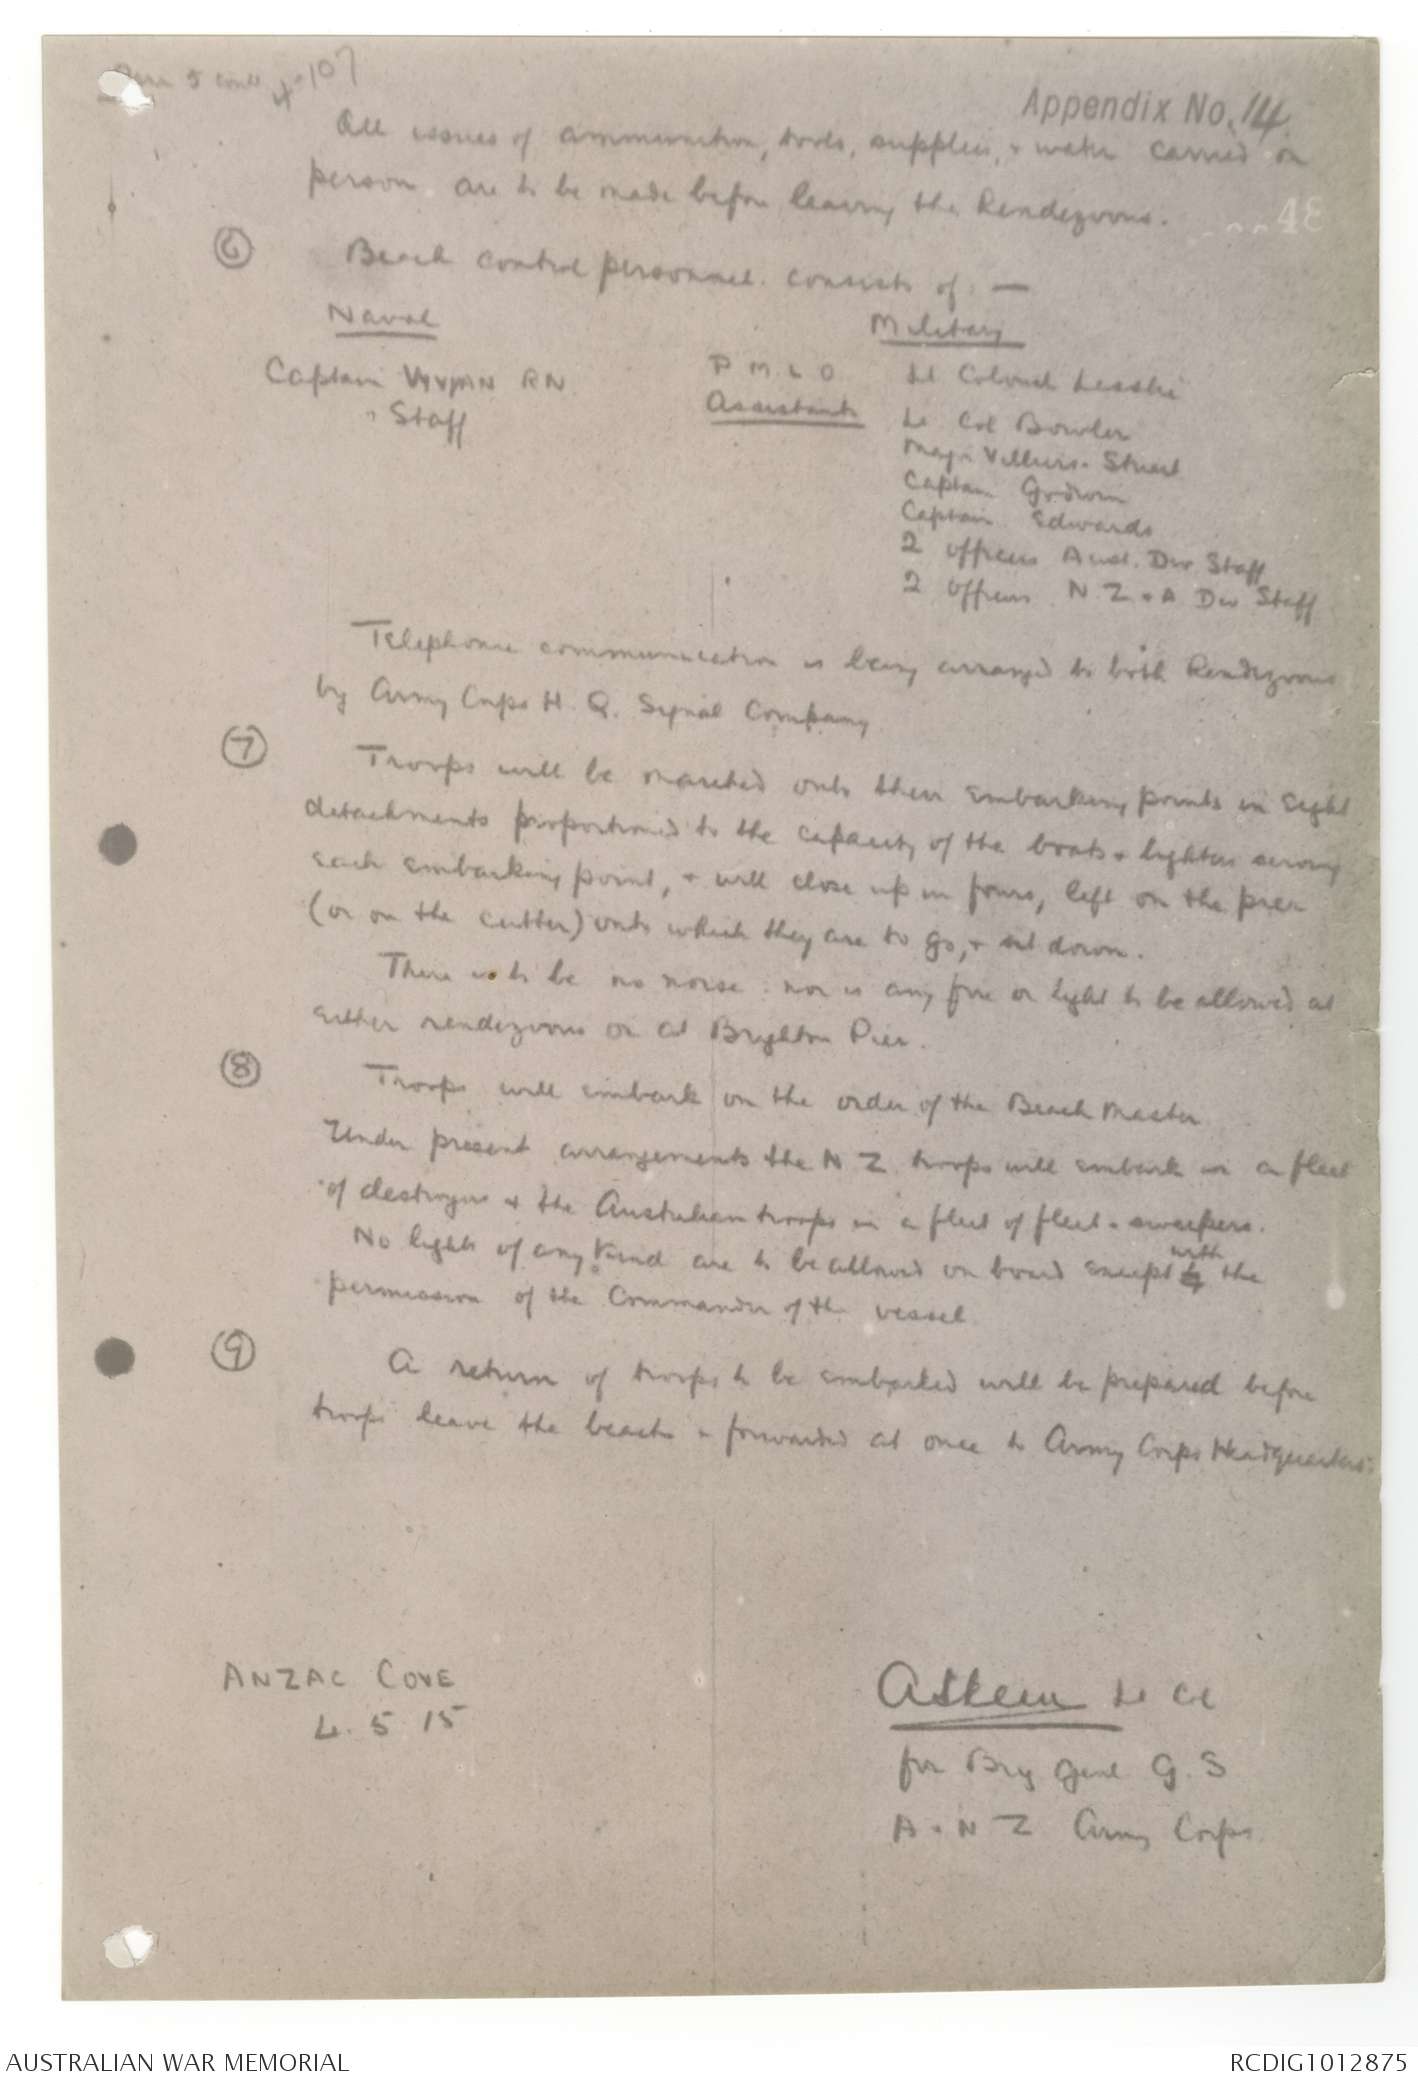 Para 5 contd 107
Appendix No. 14.
All issues of ammunition, tools, supplies, & water carried on
person are to be made before leaving the Rendezvous.
48
(6) Beach control personnel consists of :—
Naval
Military
Captain VYVYAN RN
P M L O Lt Colonel Lesslie
" Staff
Assistants Lt Col Bowler
Major Villiers-Stuart
Captain Godwin
Captain Edwards
2 officers Aust. Div Staff
2 officers N Z & A Div Staff
Telephonic communication is being arranged to both Rendezvous
by Army Corps H. Q. Signal Company
(7) Troops will be marched onto their embarking points in eight
detachments proportioned to the capacity of the boats & lighters serving
each embarking point, & will close up in fours, left on the pier
(or on the cutter) onto which they are to go, & sit down.
There is to be no noise: nor is any fire or light to be allowed at
either rendezvous or at Brighton Pier.
(8) Troops will embark on the order of the Beach Master
Under present arrangements the N Z troops will embark in a fleet
of destroyers & the Australian troops in a fleet of fleet-sweepers.
No lights of any kind are to be allowed on board except with the
permission of the Commander of the vessel
(9) A return of troops to be embarked will be prepared before
troops leave the beach & forwarded at once to Army Corps Headquarters.
ANZAC COVE
4. 5 15
A Skeen Lt Col
for Brig Genl G. S
A & N Z Army Corps
AUSTRALIAN WAR MEMORIAL
RCDIG1012875